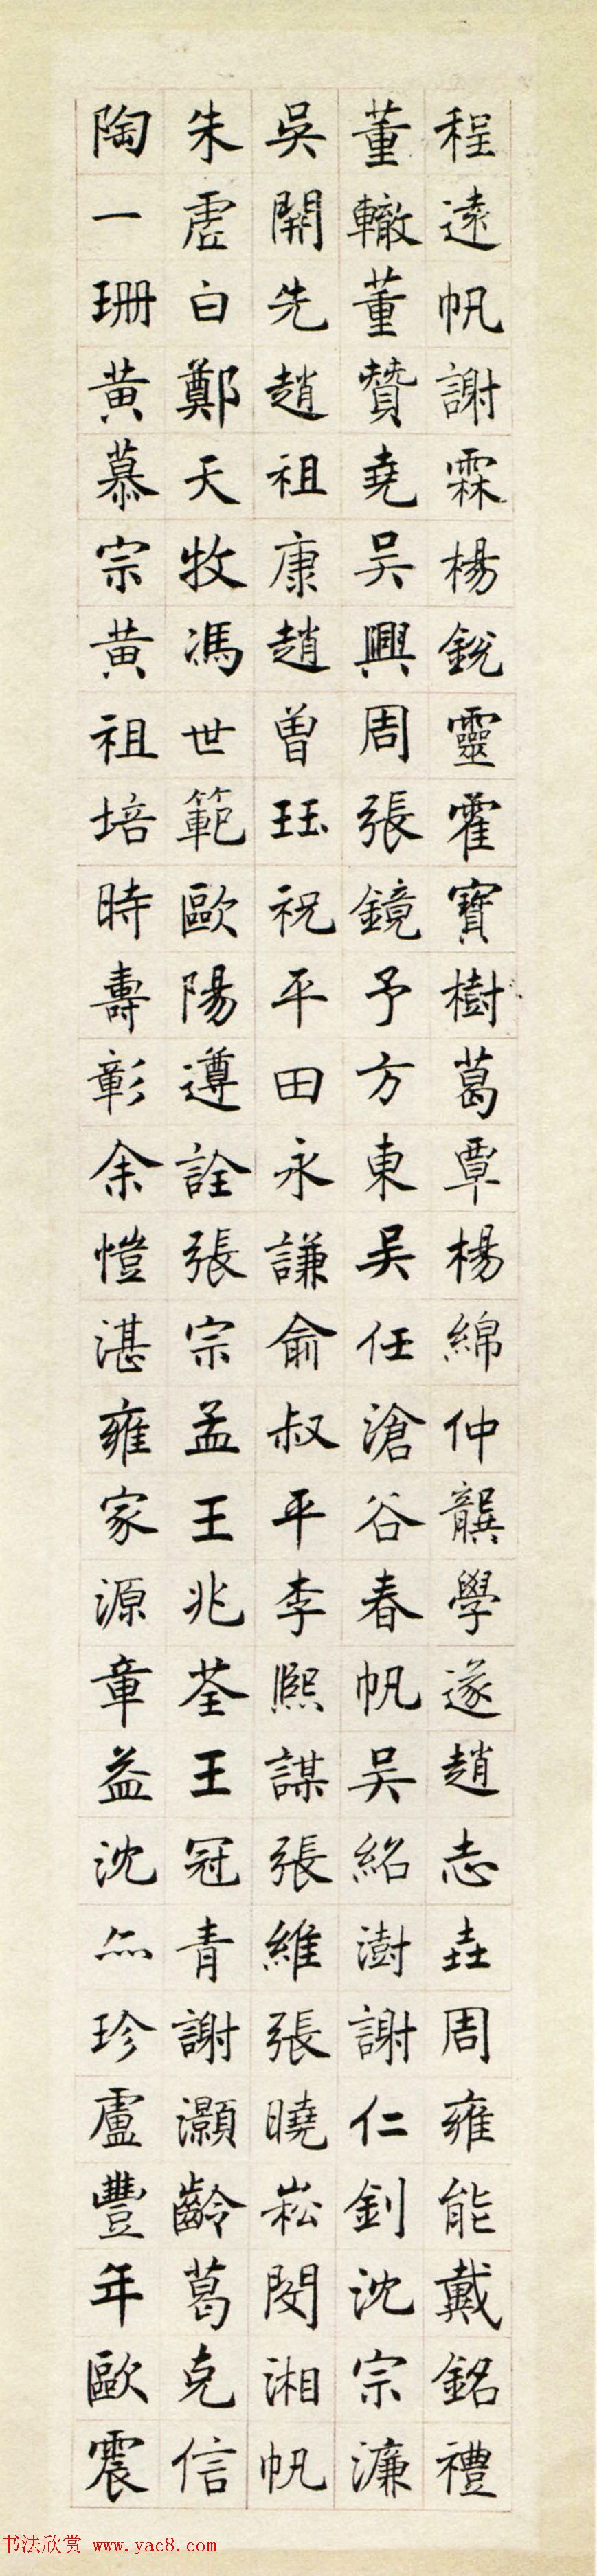 程遠帆謝霖楊銳靈霍寶樹葛覃楊綿仲龔學遂趙志垚周雍能戴銘禮
董轍董贊堯吳興周張鏡予方東吳任滄谷春帆吳紹澍謝仁釗沈宗濂
吳開先趙祖康趙曾珏祝平田永謙俞叔平李熙謀張維張曉崧閔湘帆
朱虛白鄭天牧馮世範歐陽遵詮張宗孟王兆荃王冠青謝灝齡葛克信
陶一珊黃慕宗黃祖培時壽彰余愷湛雍家源章益沈珍盧豐年歐震
书法欣赏 www.yac8.com